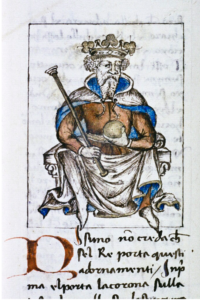 Disuno nō creda ch
sel Re porta questi
adornamenti. Inp
ma el porta la corona sulla